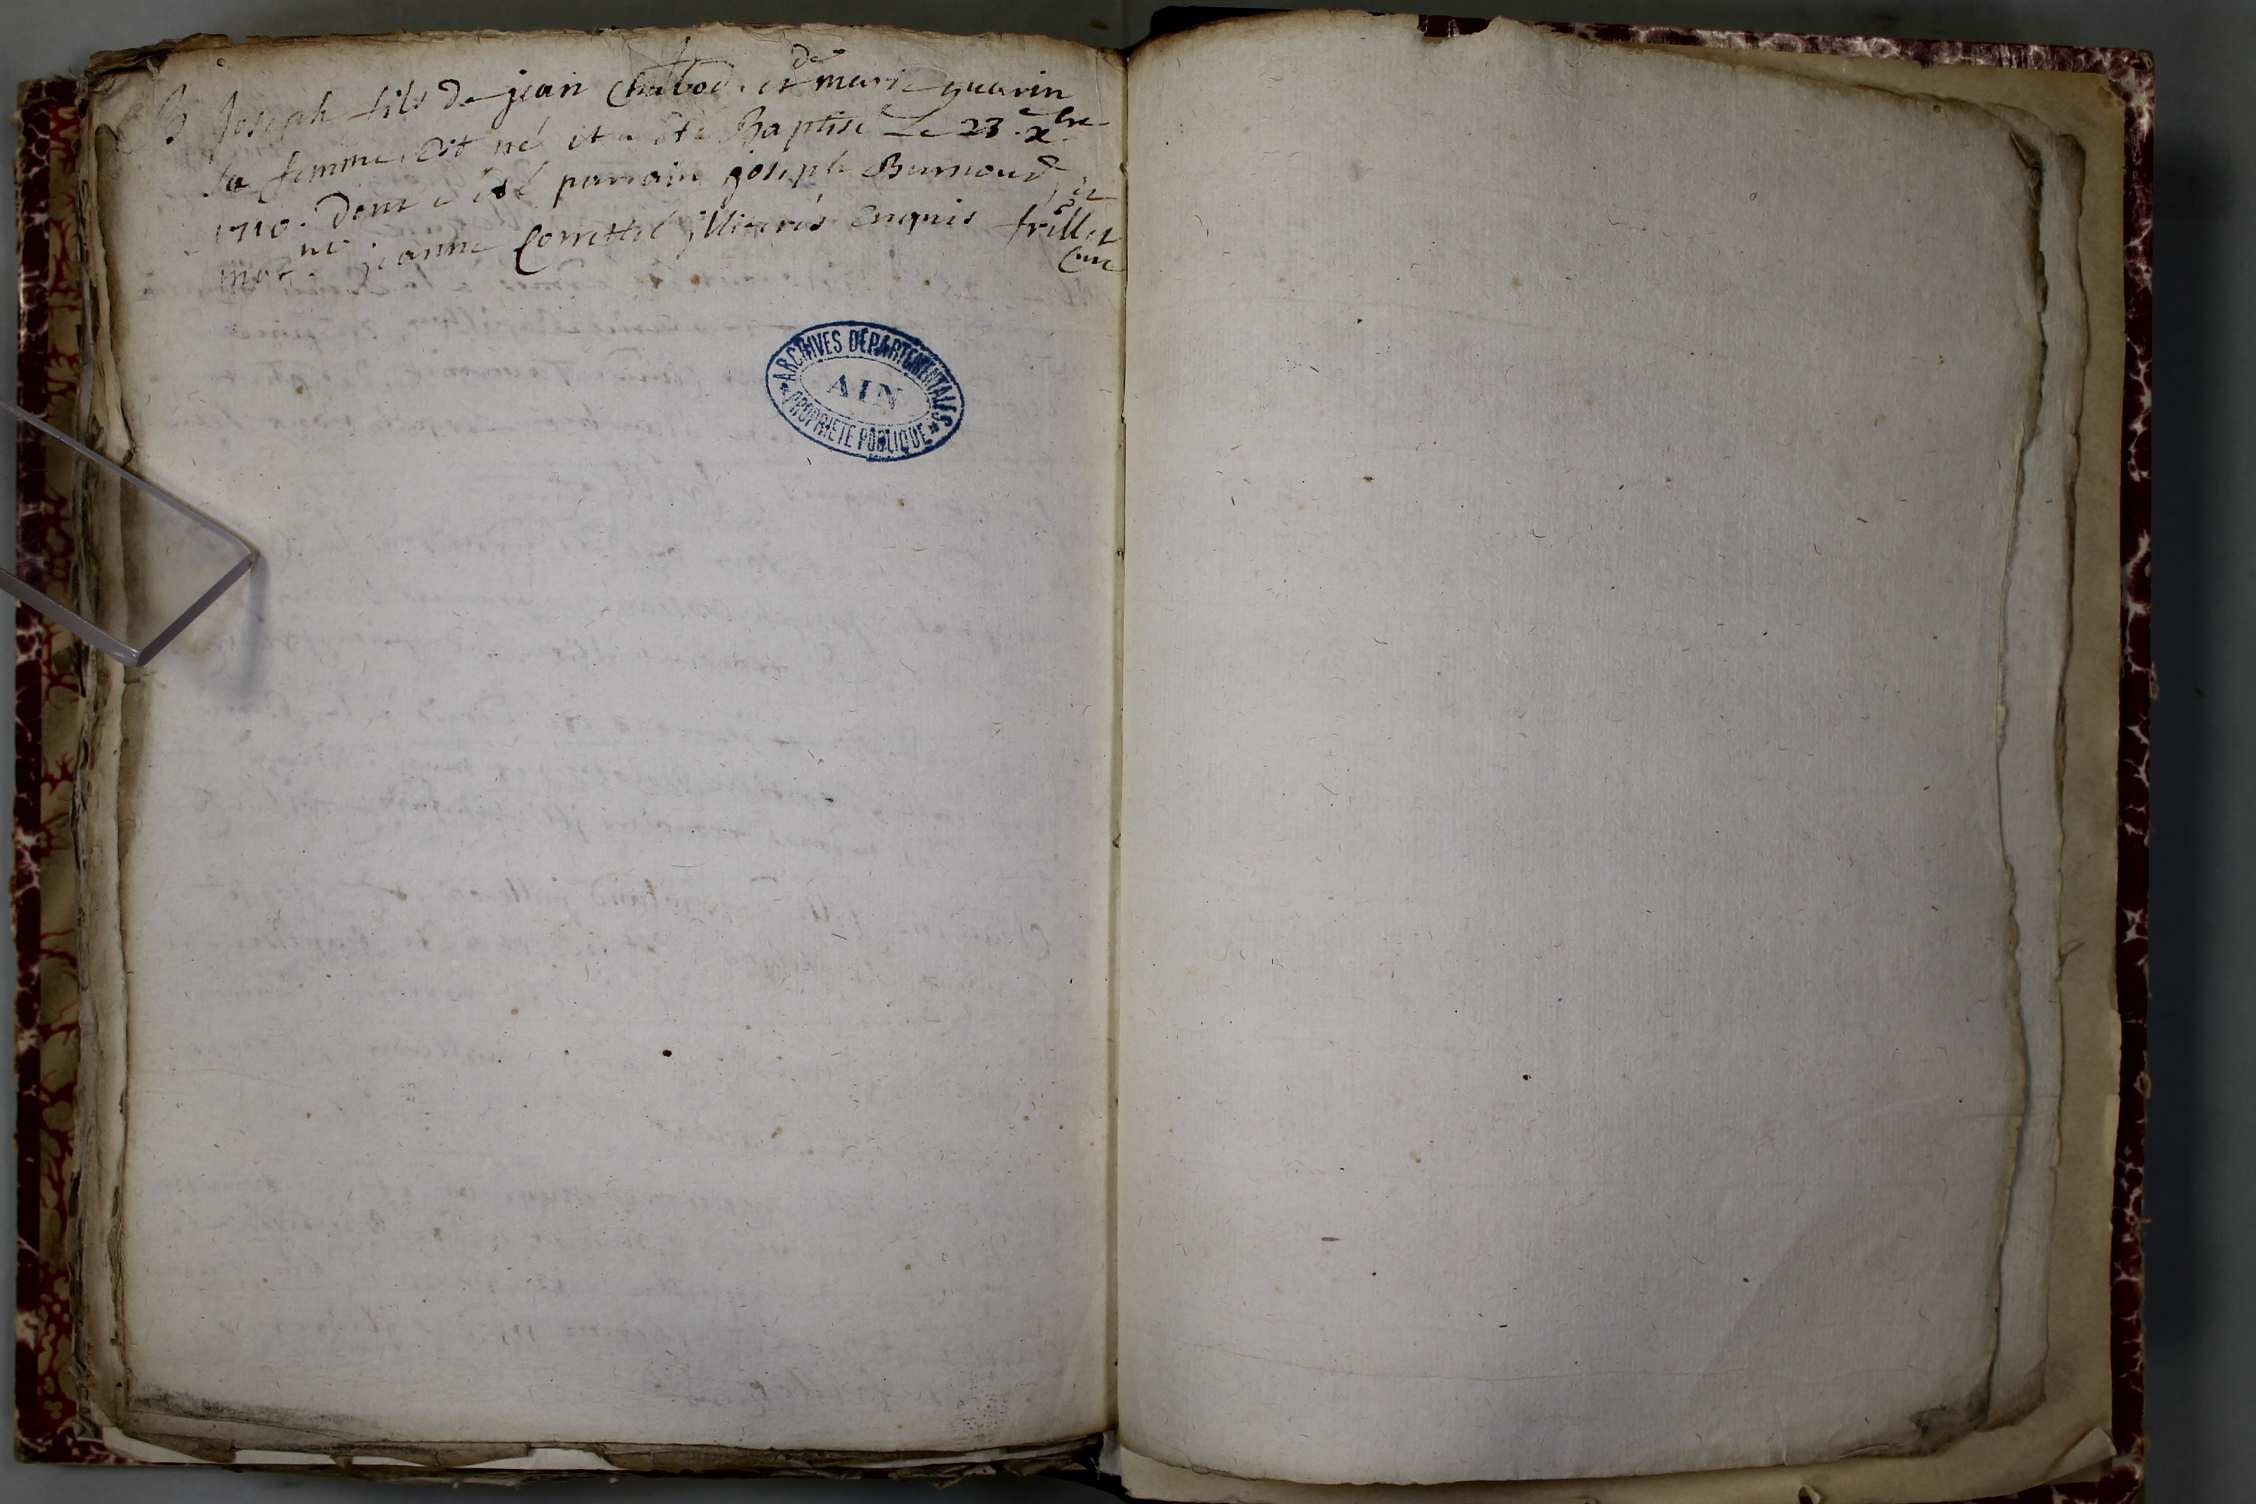 B Joseph fils de jean Chabod. et de marie guarin
sa femme, est né et a eté Baptisé Le 23. xbre
1710. dont a eté parrain joseph Burnoud, et
mar.ne jeanne illiterés enquis frillet
Curé
ARCHIVES DEPARTEMENTALES
AIN
PROPRIETE PUBLIQUE